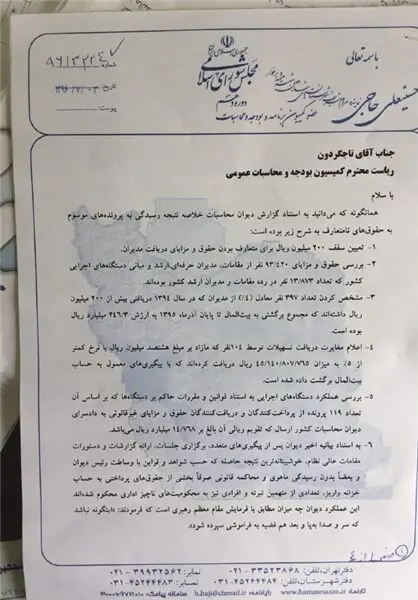 باسمه تعالی
جمهوری اسلامی ایران
مجلس شورای اسلامی
دوره دهم
حسینعلی حاجی
عضو کمیسیون برنامه و بودجه و محاسبات
شماره: ۹۶/۳۲۴
تاریخ: ۱۳۹۶/۷/۰۳
پیوست:
جناب آقای تاجگردون
ریاست محترم کمیسیون بودجه و محاسبات عمومی
با سلام
همانگونه که می‌دانید به استناد گزارش دیوان محاسبات خلاصه نتیجه رسیدگی به پرونده‌های موسوم
به حقوق‌های نامتعارف به شرح زیر بوده است:
۱- تعیین سقف ۲۰۰ میلیون ریال برای متعارف بودن حقوق و مزایای دریافت مدیران.
۲- بررسی حقوق و مزایای ۹۳/۴۲۰ نفر از مقامات، مدیران حرفه‌ای، ارشد و میانی دستگاه‌های اجرایی
کشور که تعداد ۱۳/۸۷۳ نفر در رده مقامات و مدیران ارشد کشور بوده‌اند.
۳- مشخص کردن تعداد ۳۹۷ نفر معادل (٪۴) از مدیران که در سال ۱۳۹۴ دریافتی بیش از ۲۰۰ میلیون
ریال داشته‌اند که مجموع برگشتی به بیت‌المال تا پایان آذرماه ۱۳۹۵ به ارزش ۲۴۶/۳ میلیارد ریال
بوده است.
۴- اعلام مغایرت دریافت تسهیلات توسط ۱۰۴نفر که مازاد بر مبلغ هشتصد میلیون ریال با نرخ کمتر
از ۵٪ به میزان ۴۵/۱۴۰/۸۰۷/۷۶۵ ریال دریافت کرده‌اند که با پیگیری‌های معمول به حساب
بیت‌المال برگشت داده شده است.
۵- بررسی عملکرد دستگاه‌های اجرایی به استناد قوانین و مقررات حاکم بر دستگاه‌ها که بر اساس آن
تعداد ۱۱۹ پرونده از پرداخت‌کنندگان و دریافت‌کنندگان حقوق و مزایای غیرقانونی به دادسرای
دیوان محاسبات کشور ارسال که تقویم ریالی آن بالغ بر ۱۴/۷۶۸ میلیارد ریال می‌باشد.
۶- به استناد بیانیه اخیر دیوان پس از پیگیری‌های متعدد، برگزاری جلسات، ارائه گزارشات و دستورات
مقامات عالی نظام، خوشبینانه‌ترین نتیجه حاصله که حسب شواهد و قراین با وساطت رئیس دیوان
و بعضاً بدون رسیدگی ماهوی و محاکمه قانونی صرفاً بخشی از حقوق‌های پرداختی به حساب
خزانه واریز، تعدادی از متهمین تبرئه و افرادی نیز به محکومیت‌های ناچیز اداری محکوم شده‌اند
این عملکرد دیوان چه میزان مطابق با فرمایش مقام معظم رهبری است که فرمودند: «اینگونه نباشد
که سر و صدا به‌پا و بعد هم قضیه به فراموشی سپرده شود».
صفحه ۱ از ۴
دفتر تهران، تلفن: ۳۳۵۲۳۸۶۸-۰۲۱ نمابر: ۳۹۹۳۲۵۶۲-۰۲۱
دفتر شهرستان، تلفن: ۴۵۲۴۴۴۸۳-۰۳۱ نمابر: ۴۵۲۴۴۴۸۳-۰۳۱
تارنما: www.hamasesazan.ir h.haji@chmail.ir سامانه پیامک: ۳۰۰۰۷۹۷۱۰۱۰